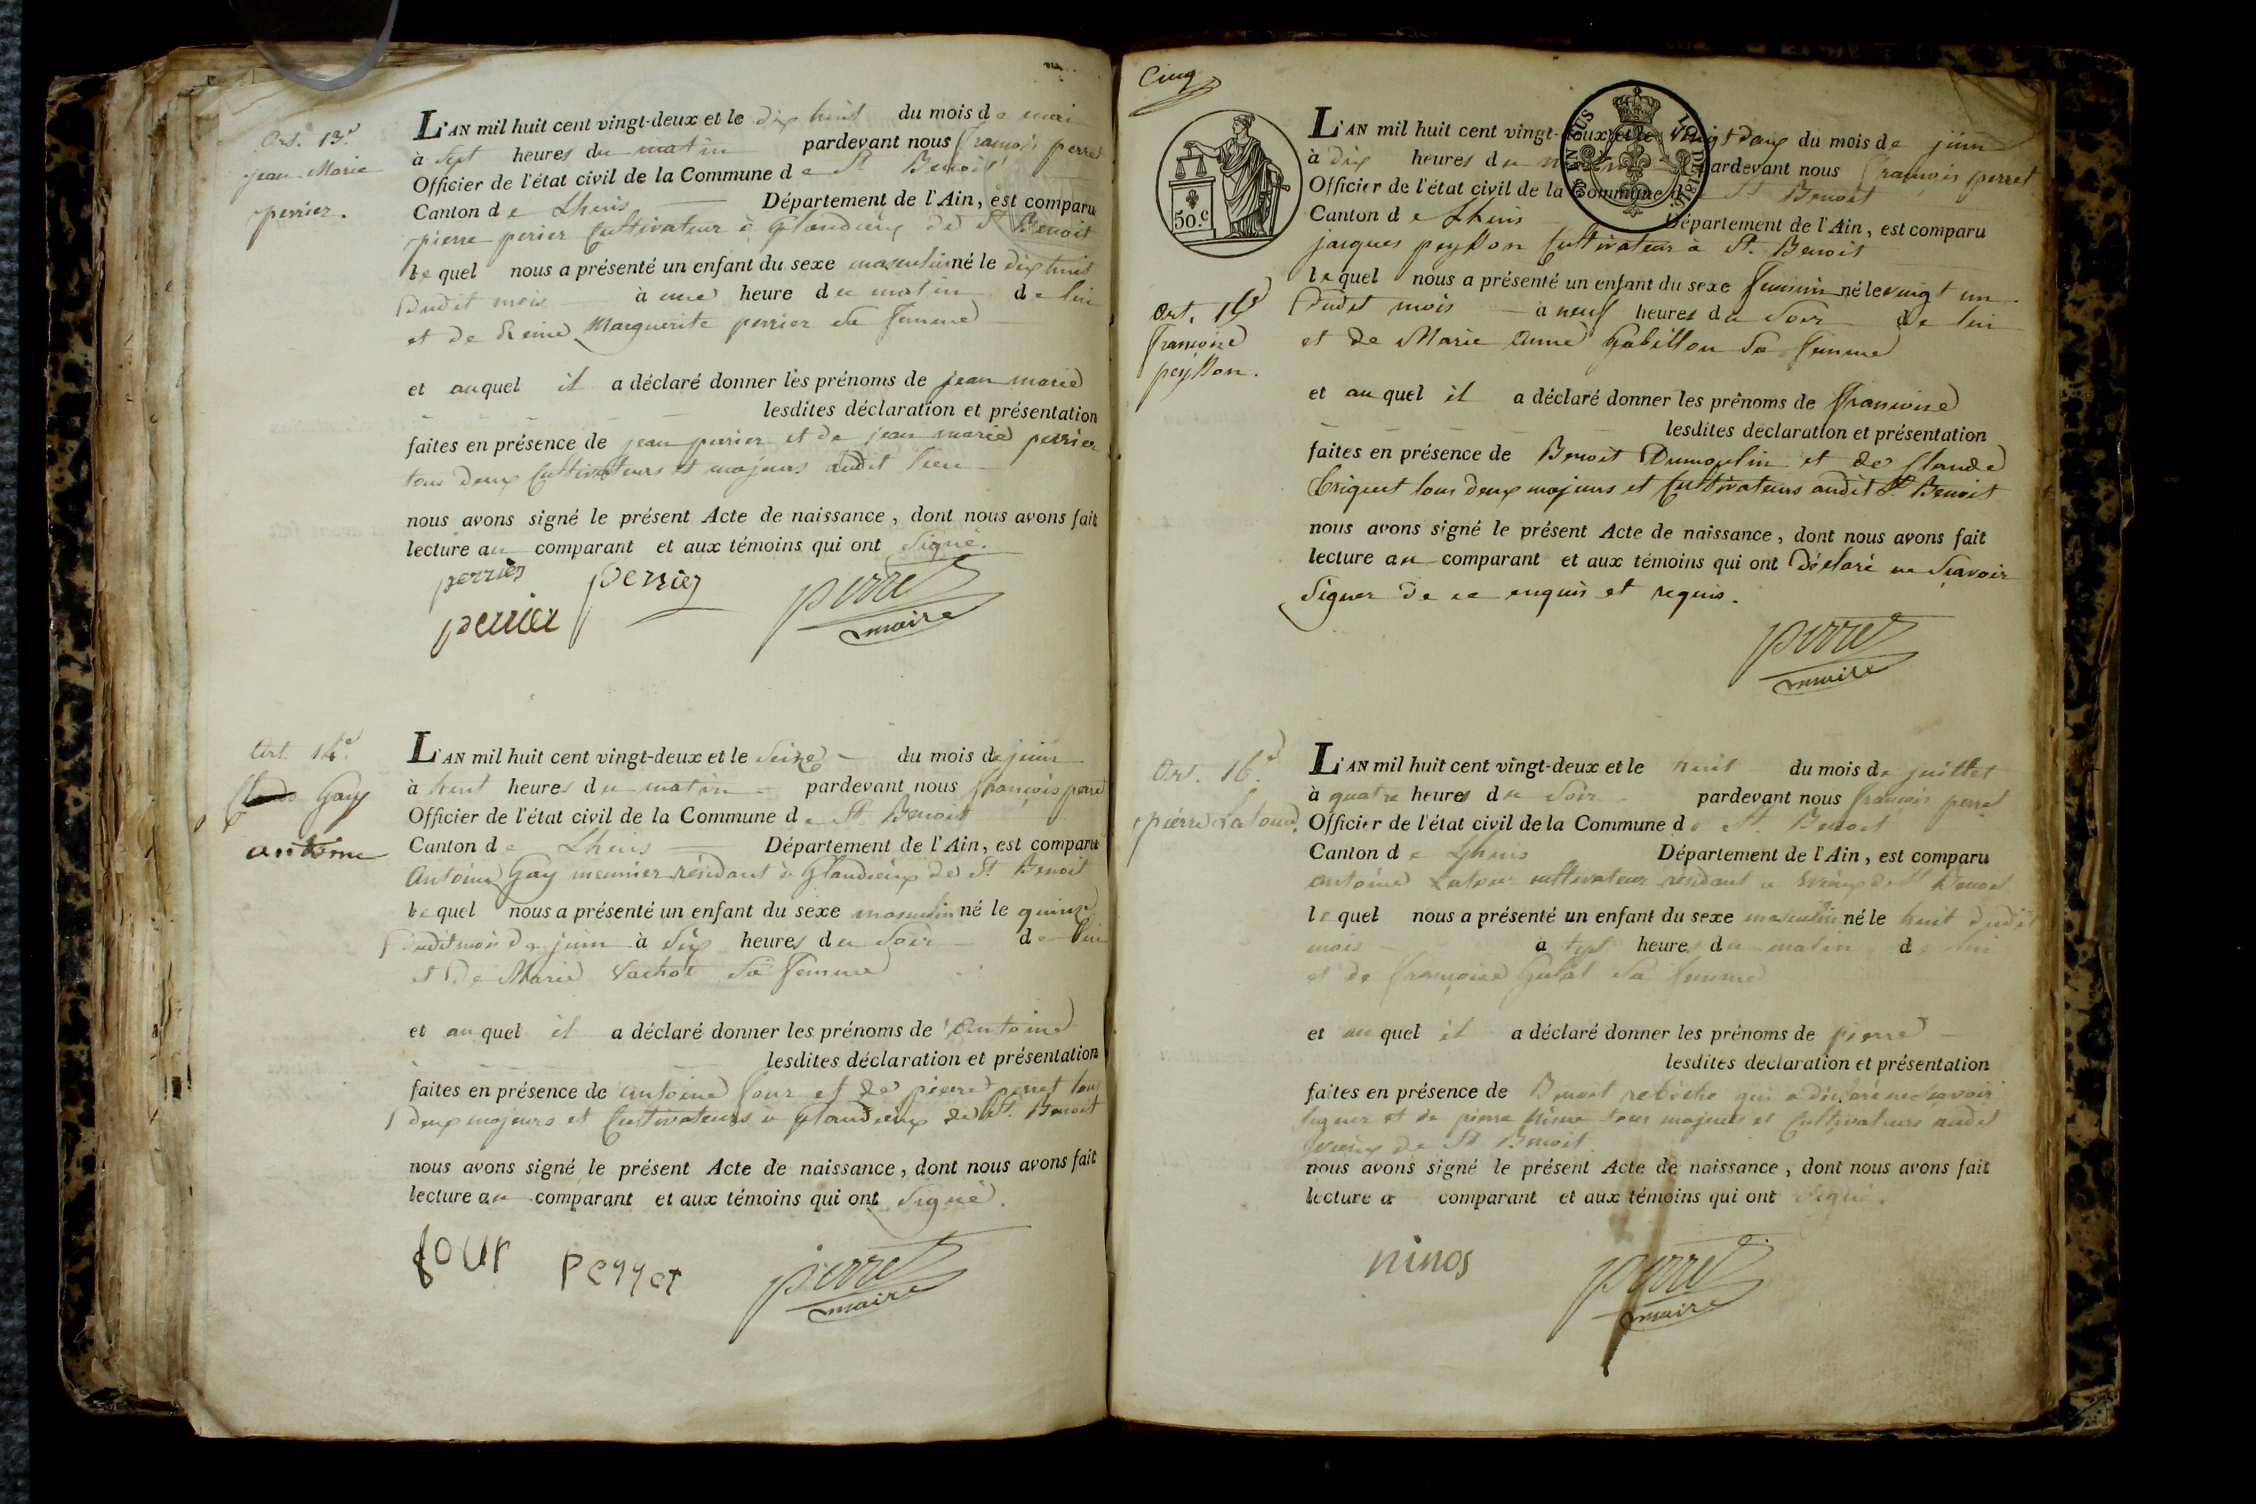 Art. 13e
jean Marie
perrier.
L'AN mil huit cent vingt-deux et le dix huit du mois de mai
à sept heures du matin pardevant nous françois perret
Officier de l'état civil de la Commune de St Benoit
Canton de Lhuis Département de l'Ain, est comparu
pierre perier Cultivateur à Glandieux de St Benoit
lequel nous a présenté un enfant du sexe masculin né le dix huit
Dudit mois à une heure du matin de lui
et de Reine Marguerite perrier sa femme
et auquel il a déclaré donner les prénoms de jean marie
lesdites déclaration et présentation
faites en présence de jean perrier et de jean marie perrier
tous deux Cultivateurs et majeurs audit lieu
nous avons signé le présent Acte de naissance, dont nous avons fait
lecture au comparant et aux témoins qui ont signé.
perrier perrier perret
perrier maire
Art. 14e
Gay
antoine
L'AN mil huit cent vingt-deux et le seize du mois de juin
à huit heures du matin pardevant nous françois perret
Officier de l'état civil de la Commune de St Benoit
Canton de Lhuis Département de l'Ain, est comparu
Antoine Gay meunier résidant à Glandieux de St Benoit
lequel nous a présenté un enfant du sexe masculin né le quinze
Dudit mois de juin à six heures du soir de lui
et De Marie Vachot sa femme
et auquel il a déclaré donner les prénoms de Antoine
lesdites déclaration et présentation
faites en présence de antoine four et de pierre perret tous
deux majeurs et Cultivateurs à Glandieux de St. Benoit
nous avons signé le présent Acte de naissance, dont nous avons fait
lecture au comparant et aux témoins qui ont signé.
four perret perret
maire
Cinq
50.c
LOI DE 1816
Art. 15e
françoise
peysson.
L'AN mil huit cent vingt-deux et le vingt deux du mois de juin
à dix heures du matin pardevant nous françois perret
Officier de l'état civil de la Commune de St Benoit
Canton de Lhuis Département de l'Ain, est comparu
jacques peysson Cultivateur à St. Benoit
lequel nous a présenté un enfant du sexe feminin né le vingt un
Dudit mois à neuf heures du soir de lui
et de Marie Anne Gabillon sa femme
et auquel il a déclaré donner les prénoms de françoise
lesdites déclaration et présentation
faites en présence de Benoit Dumoulin et de Claude
Briquet tous deux majeurs et Cultivateurs audit St Benoit
nous avons signé le présent Acte de naissance, dont nous avons fait
lecture au comparant et aux témoins qui ont Déclaré ne sçavoir
signer de ce enquis et requis.
perret
maire
Art. 16e
pierre Latour.
L'AN mil huit cent vingt-deux et le huit du mois de juillet
à quatre heures du soir pardevant nous françois perret
Officier de l'état civil de la Commune de St. Benoit
Canton de Lhuis Département de l'Ain, est comparu
antoine Latour cultivateur résidant a de St Benoit
lequel nous a présenté un enfant du sexe masculin né le huit dudit
mois à sept heures du matin de lui
et de françoise sa femme
et auquel il a déclaré donner les prénoms de pierre
lesdites déclaration et présentation
faites en présence de Benoit qui a déclaré ne sçavoir
signer et de pierre tous majeurs et Cultivateurs audit
de St Benoit
nous avons signé le présent Acte de naissance, dont nous avons fait
lecture a comparant et aux témoins qui ont signé.
perret
maire